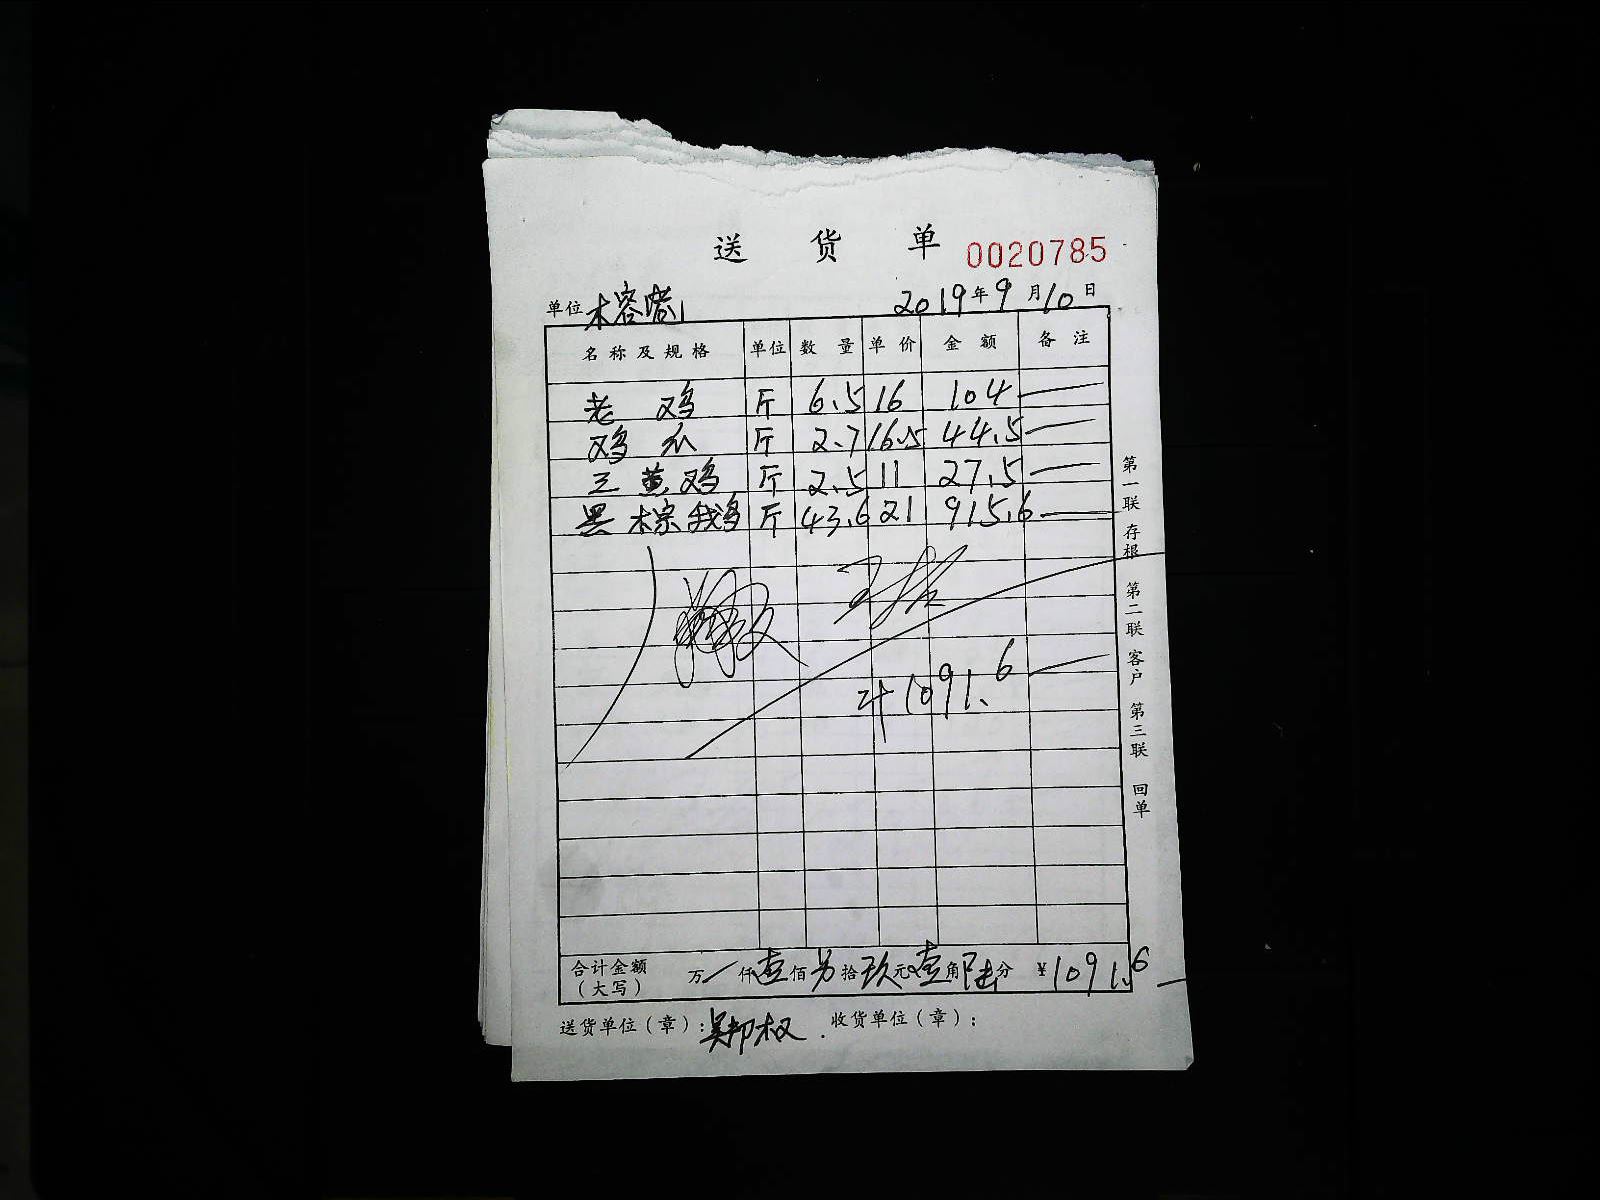 送 货 单 0020785
单位 木容 2019年9月10日
名称及规格 单位 数量 单价 金额 备注
老鸡 斤 6.5 16 104
鸡爪 斤 2.7 16.5 44.5
三黄鸡 斤 2.5 11 27.5
黑棕鹅 斤 43.6 21 915.6
计1091.6
合计金额(大写) 万一仟壹佰另拾玖元壹角陆分 ¥1091.6
送货单位(章):吴邦权 收货单位(章):
第一联 存根 第二联 客户 第三联 回单